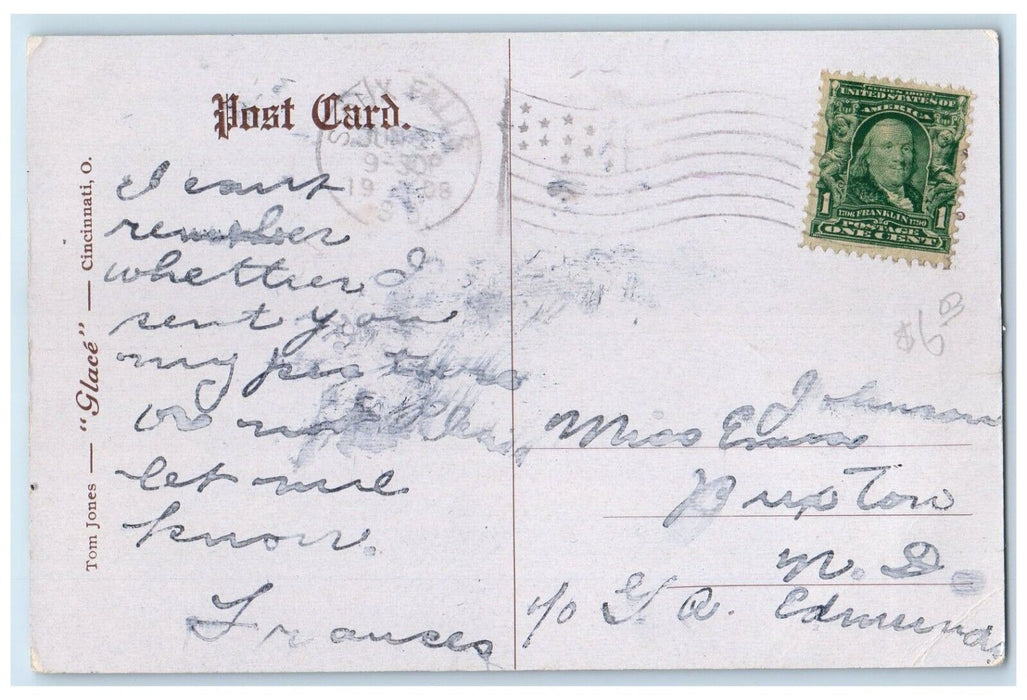 Post Card.
Tom Jones — "Glacé" — Cincinnati, O.
I cant
remember
whether I
sent you
my picture
or not Please
let me
know.
Frances
FALLS
9-30P
1908
SERIES 1902
UNITED STATES OF
AMERICA
1706 FRANKLIN 1790
POSTAGE
1 ONE CENT 1
$6
Miss Emma Johnson
Buxton
N. D.
c/o G. A. Edmunds